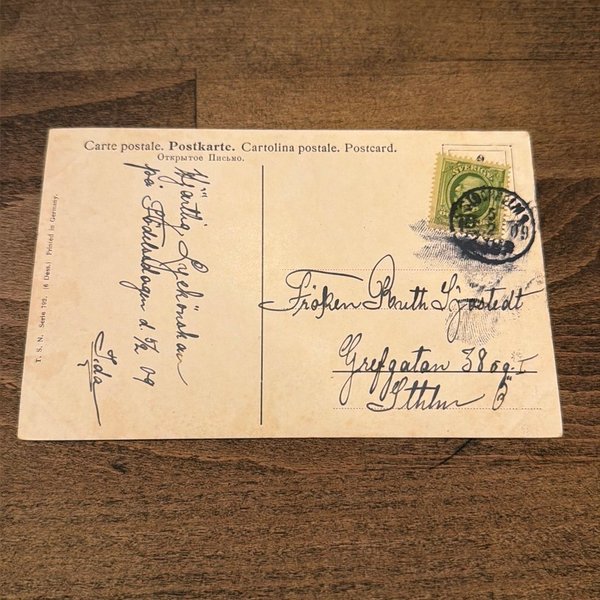 Carte postale. Postkarte. Cartolina postale. Postcard.
Открытое Письмо.
T. S. N. Serie 709. (6 Dess.) Printed in Germany.
Hjärtlig Lyckönskan
på Födelsedagen d 5/2 09
Ida
SVERIGE
5
09
Fröken Ruth Sjöstedt
Grefgatan 38 og. I
Sthlm Ö